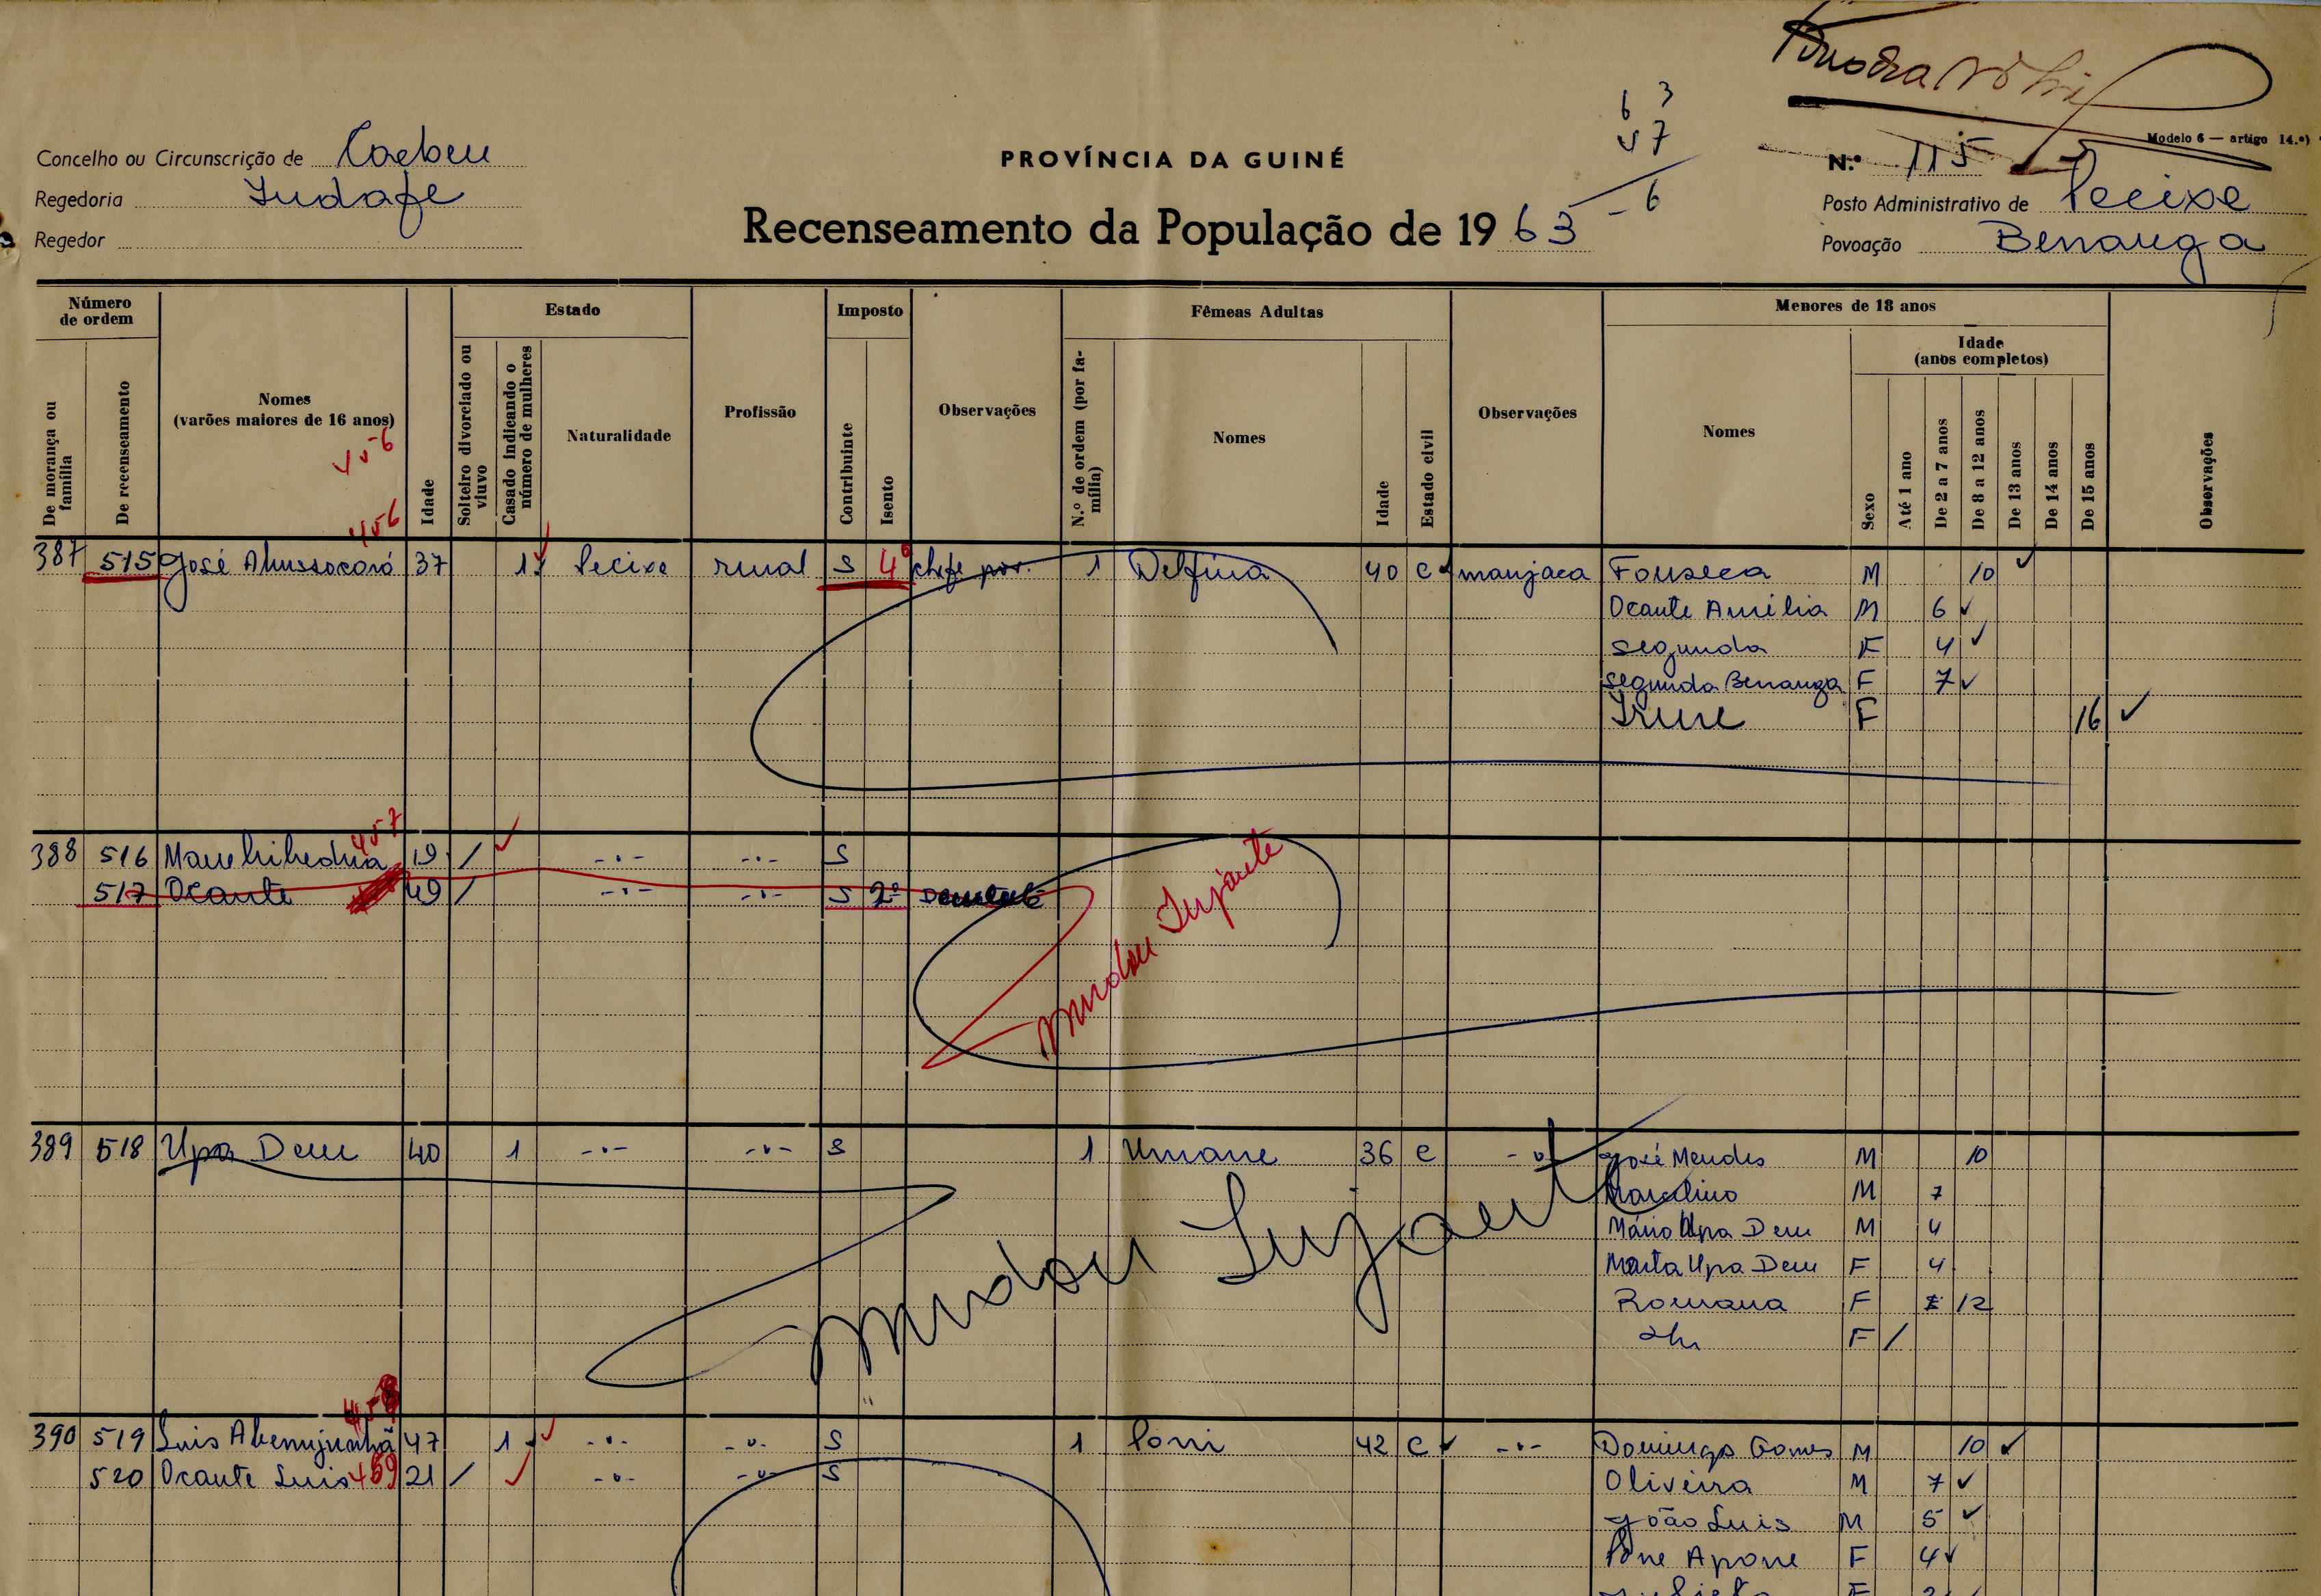 6 3
57
- 6
Modelo 6 — artigo 14.º)
Concelho ou Circunscrição de Caebeu
PROVÍNCIA DA GUINÉ
N.º 115
Regedoria Indafe
Posto Administrativo de Pecixe
Regedor
Recenseamento da População de 19 63
Povoação Benanga
Número de ordem
Estado
Imposto
Fêmeas Adultas
Menores de 18 anos
Idade
(anos completos)
De morança ou família
De recenseamento
Nomes
(varões maiores de 16 anos)
Idade
Solteiro divorciado ou viuvo
Casado indicando o número de mulheres
Naturalidade
Profissão
Contribuinte
Isento
Observações
N.º de ordem (por família)
Nomes
Idade
Estado civil
Observações
Nomes
Sexo
Até 1 ano
De 2 a 7 anos
De 8 a 12 anos
De 13 anos
De 14 anos
De 15 anos
Observações
456
456
387 515 José 37 1 Pecixe rural S 4º chefe pov. 1 Delfina 40 C manjaca Fonseca M 10
Ocante Amilia M 6
Segunda F 4
Segunda Benanga F 7
Irene F 16
457
388 516 19 / -·- -·- S
517 Ocante 49 / -·- -·- S 2º Demente
Mudou Tujante
389 518 Upa Deu 40 1 -·- -·- S 1 Umane 36 C -·- José Mendes M 10
Marcelino M 7
Mário Upa Deu M 4
Marta Upa Deu F 4
Romana F 12
F /
Mudou Tujante
458
390 519 Luis 47 1 -·- -·- S 1 Poni 42 C -·- Domingo Gomes M 10
520 Ocante Luis 459 21 / -·- -·- S Oliveira M 7
João Luis M 5
Pone Apone F 4
F